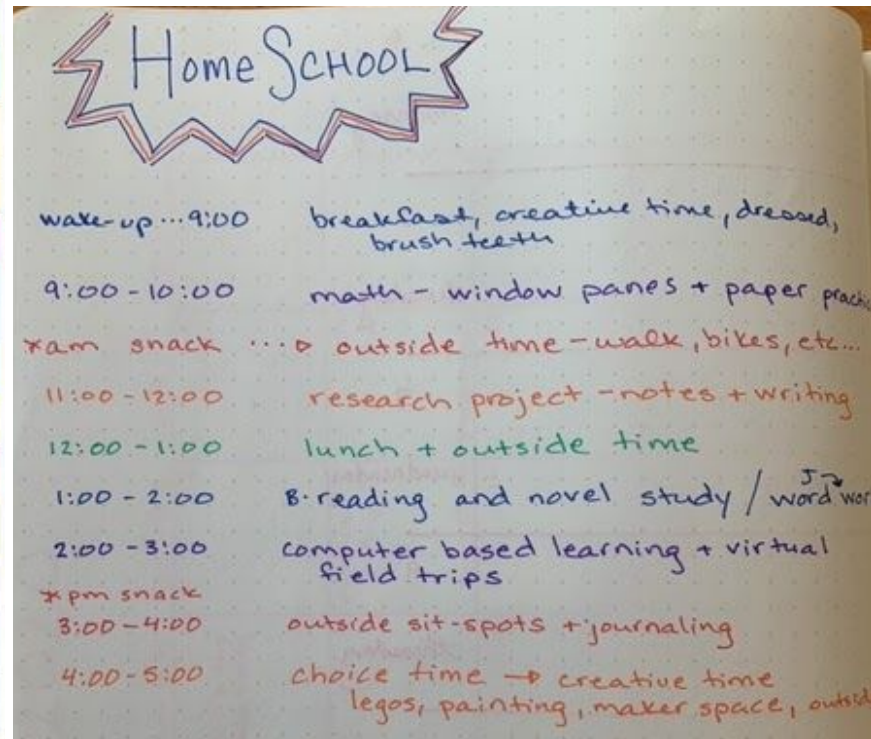 Home SCHOOL
wake-up ... 9:00 breakfast, creative time, dressed,
brush teeth
9:00 - 10:00 math - window panes + paper
*am snack ... → outside time - walk, bikes, etc...
11:00 - 12:00 research project - notes + writing
12:00 - 1:00 lunch + outside time
1:00 - 2:00 B. reading and novel study / J word
2:00 - 3:00 computer based learning + virtual
field trips
*pm snack
3:00 - 4:00 outside sit-spots + journaling
4:00 - 5:00 choice time → creative time
legos, painting, maker space,